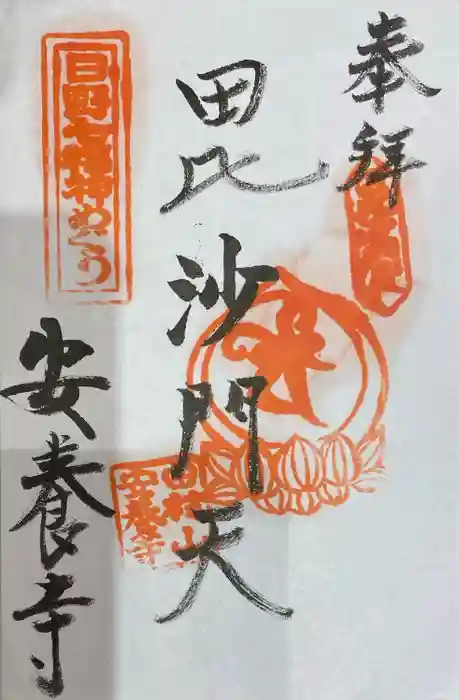 奉拝
毘沙門天
安養寺
日野七福神めぐり
田村山
安養寺